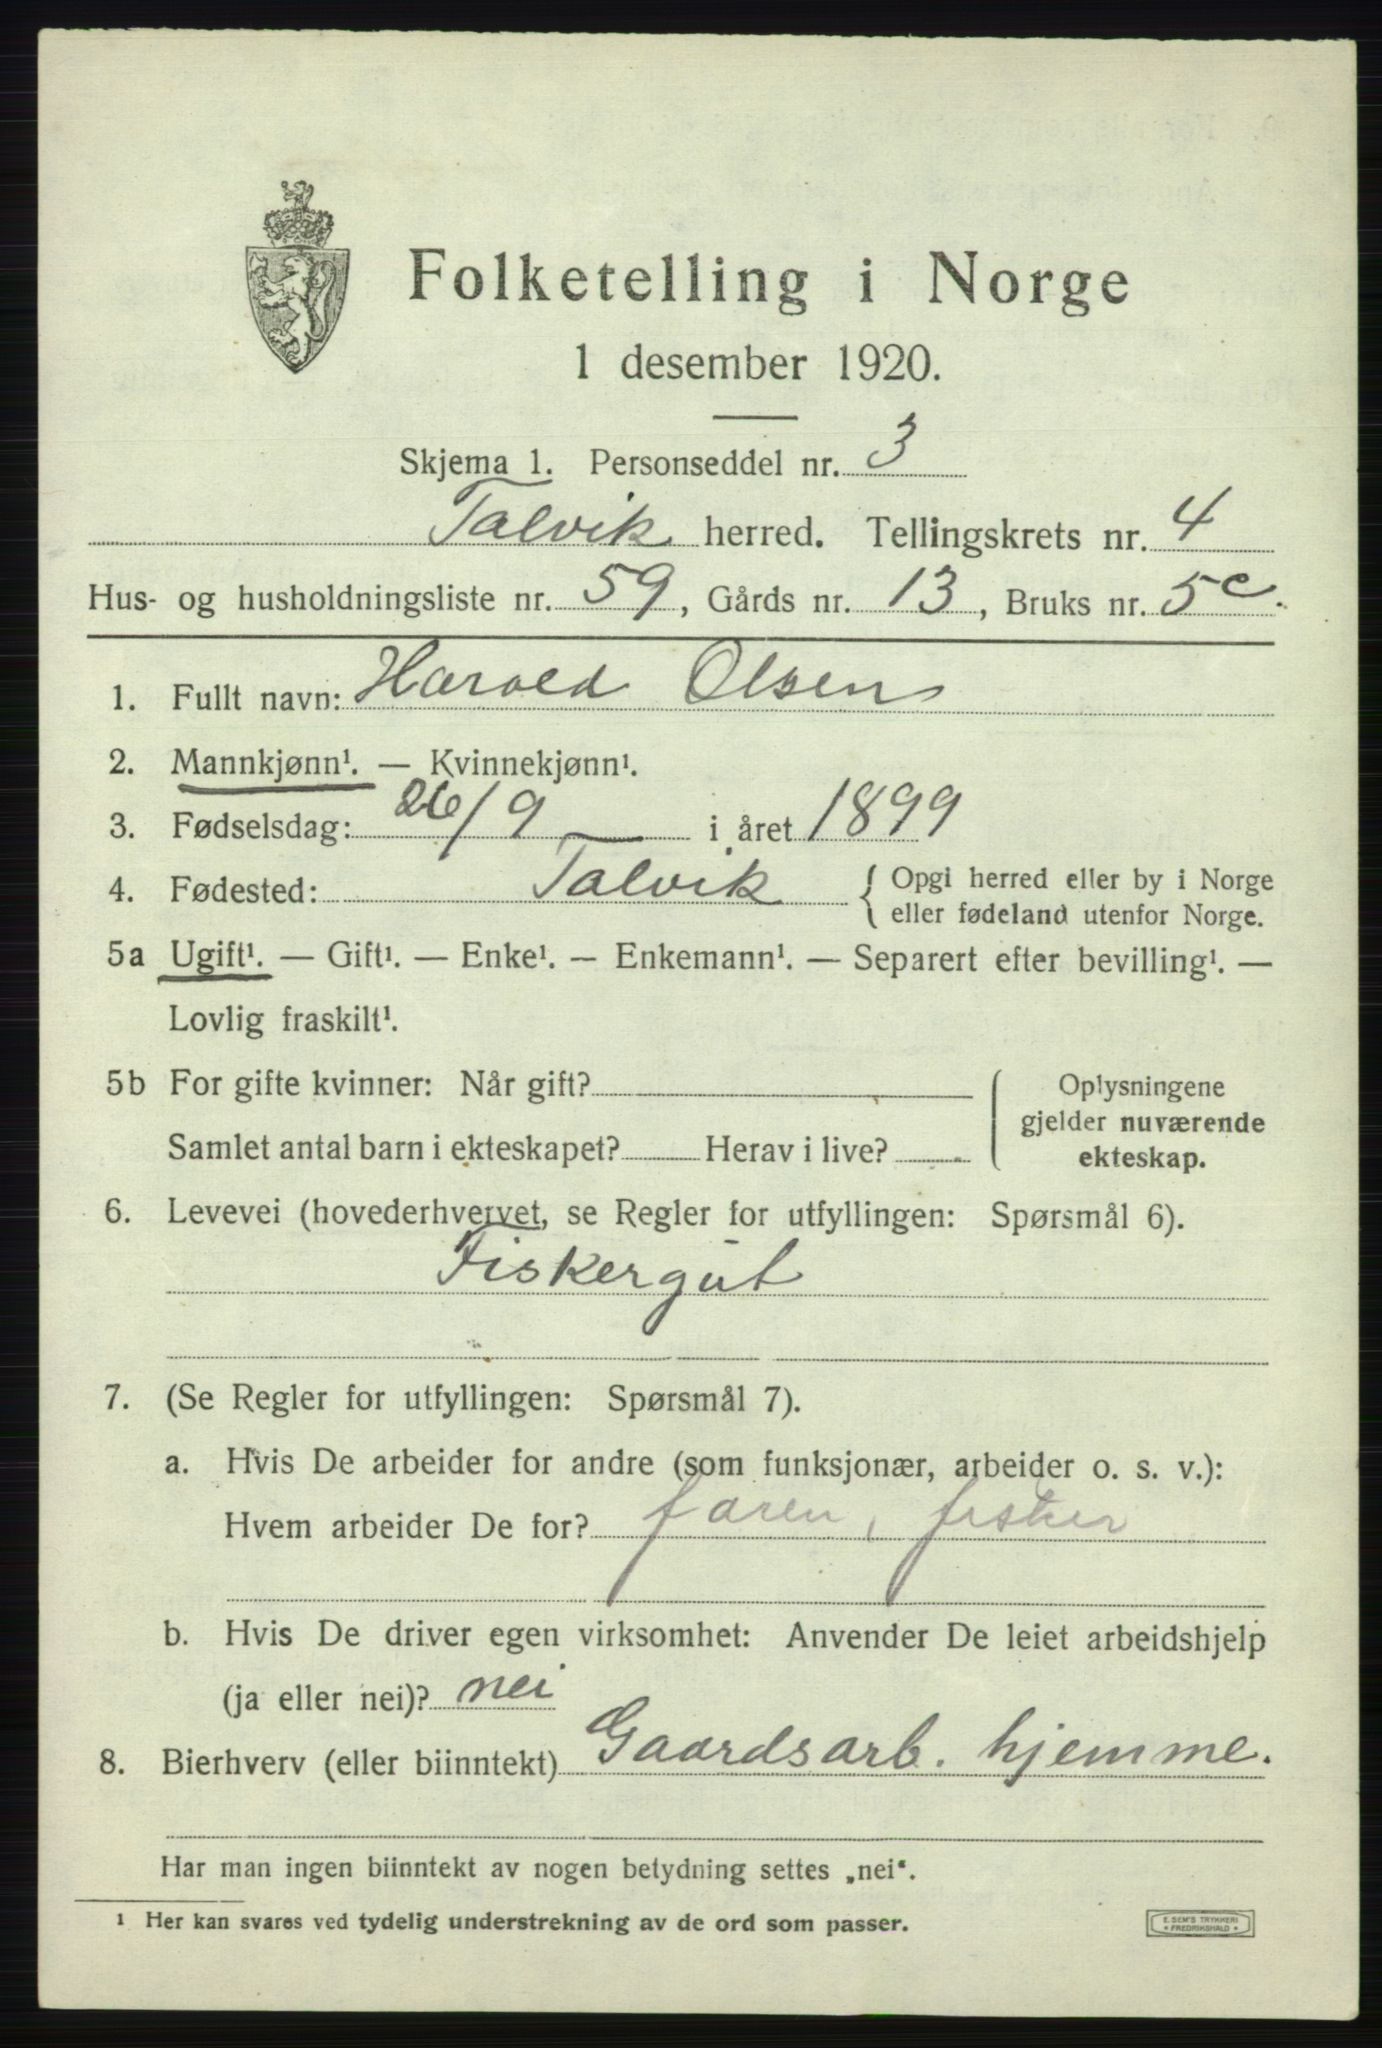 Folketelling i Norge
1 desember 1920.
Skjema 1. Personseddel nr. 3
Talvik herred. Tellingskrets nr. 4
Hus- og husholdningsliste nr. 59, Gårds nr. 13, Bruks nr. 5c.
1. Fullt navn: Harold Olsen
2. Mannkjønn¹. — Kvinnekjønn¹.
3. Fødselsdag: 26/9 i året 1899
4. Fødested: Talvik { Opgi herred eller by i Norge
eller fødeland utenfor Norge.
5a Ugift¹. — Gift¹. — Enke¹. — Enkemann¹. — Separert efter bevilling¹. —
Lovlig fraskilt¹.
5b For gifte kvinner: Når gift?
Samlet antal barn i ekteskapet? Herav i live?
Oplysningene
gjelder nuværende
ekteskap.
6. Levevei (hovederhvervet, se Regler for utfyllingen: Spørsmål 6).
Fiskergut
7. (Se Regler for utfyllingen: Spørsmål 7).
a. Hvis De arbeider for andre (som funksjonær, arbeider o. s. v.):
Hvem arbeider De for? faren, fisker
b. Hvis De driver egen virksomhet: Anvender De leiet arbeidshjelp
(ja eller nei)? nei
8. Bierhverv (eller biinntekt) Gaardsarb. hjemme.
Har man ingen biinntekt av nogen betydning settes „nei“.
¹ Her kan svares ved tydelig understrekning av de ord som passer.
E. SEM'S TRYKKERI
• FREDRIKSHALD •